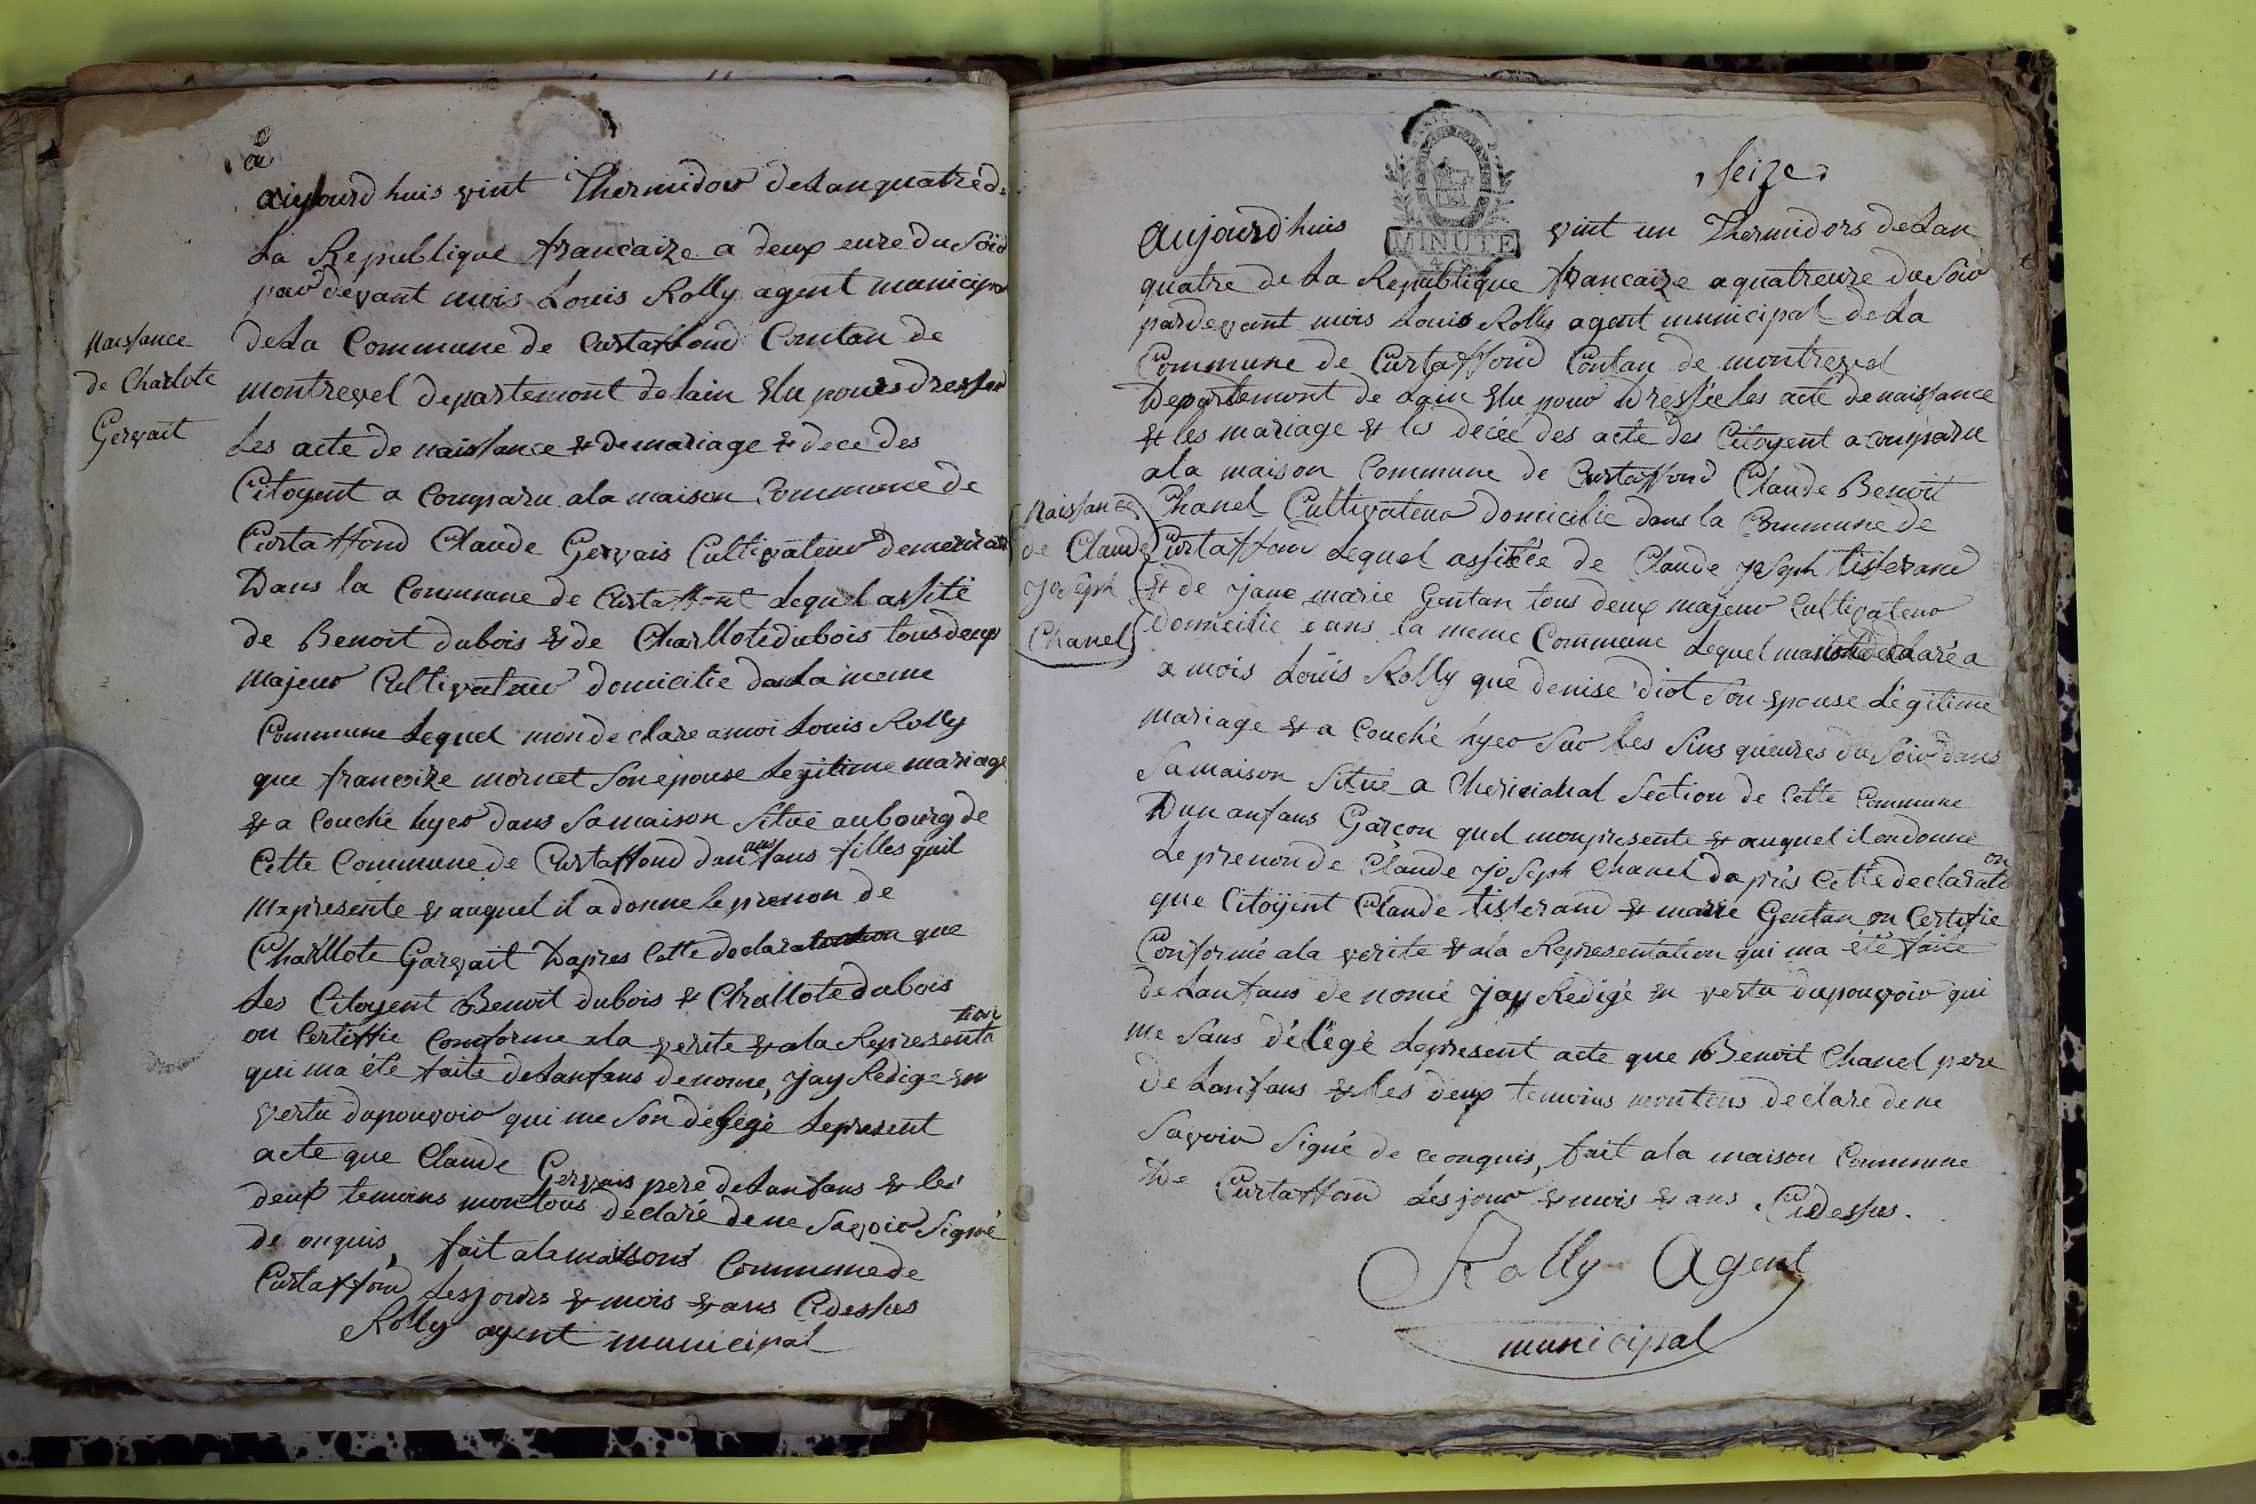 aujourdhuis vint Thermidor deLan quatre de
La Republique francaize a deux eure du Soir
par devant mois Louis Rolly agent municipal
deLa Commune de Curtaffond Contan de
montrevel departemont delain Elu pour dresser
Les acte de naissance & de mariage & dece des
Citoyent a Comparu ala maison Commune de
Curtaffond Claude Gervais Cultivateur demeurant
Dans la Commune de Curtaffont Lequel assité
de Benoit dubois & de Charllote dubois tous deux
majeur Cultivateur domicilie dan La meme
Commune Lequel mon declare a moi Louis Rolly
que francoize mornet Son epouse Legitime mariage
& a Couché hyer dans Sa maison Situé au bourg de
Cette Commune de Curtaffond dun anfans filles quil
ma presente & auquel il a donne Le prenon de
Charllote Garvait Dapres Cette declaration que
Les Citoyent Benoit dubois & Charllote dubois
on Certiffie Conforme ala verite & ala Representation
qui ma été faite deLanfans denome, Jay Redige En
vertu du pouvoir qui me Son délégé Le present
acte que Claude Gervais pere deLanfans & les
deux temoins mon tous déclaré de ne Savoir Signé
de onquis, fait ala maison Commune de
Curtaffond Les jours & mois & ans Cidessus
Rolly agent municipal
Naissance
de Charlote
Gervait
Seize
MINUTE
aujourdhuis vint un Thermidors deLan
quatre de La Republique francaize a quatreure du Soir
par devant mois Louis Rolly agent municipal deLa
Commune de Curtaffond Contan de montrevel
Departemont de Lain Elu pour Dressée les acte de naissance
& les mariage & les décée des acte des Citoyent a Comparu
ala maison Commune de Curtaffond Claude Benoit
Chanel Cultivateur domicilie dans la Commune de
Curtaffon Lequel assitée de Claude Joseph tisserand
& de Jane marie Gentan tous deux majeur Cultivateur
Domicilie dans la meme Commune Lequel declaré a
a mois Louis Rolly que denise diot Son Epouse Légitime
mariage & a Couché hyer Sur les Sins queures du Soir dans
Sa maison Situé a Section de Cette Commune
Dun anfans Garcon quel mon presente & auquel il on donne
Le prenon de Claude Joseph Chanel dapris Cette declaration
que Citoyint Claude tisserand & marie Gentan on Certifie
Conformé ala verite & ala Representation qui ma été faite
de Lanfans de nomé Jay Redigé En vertu du pouvoir qui
me Sans délégé Le present acte que Benoit Chanel pere
de Lanfans & les deux temoins mon tous declare de ne
Savoir Signé de ce onquis, fait ala maison Commune
De Curtaffond Les jour & mois & ans Cidessus.
Rolly Agent
municipal
Naissance
de Claude
Joseph
Chanel